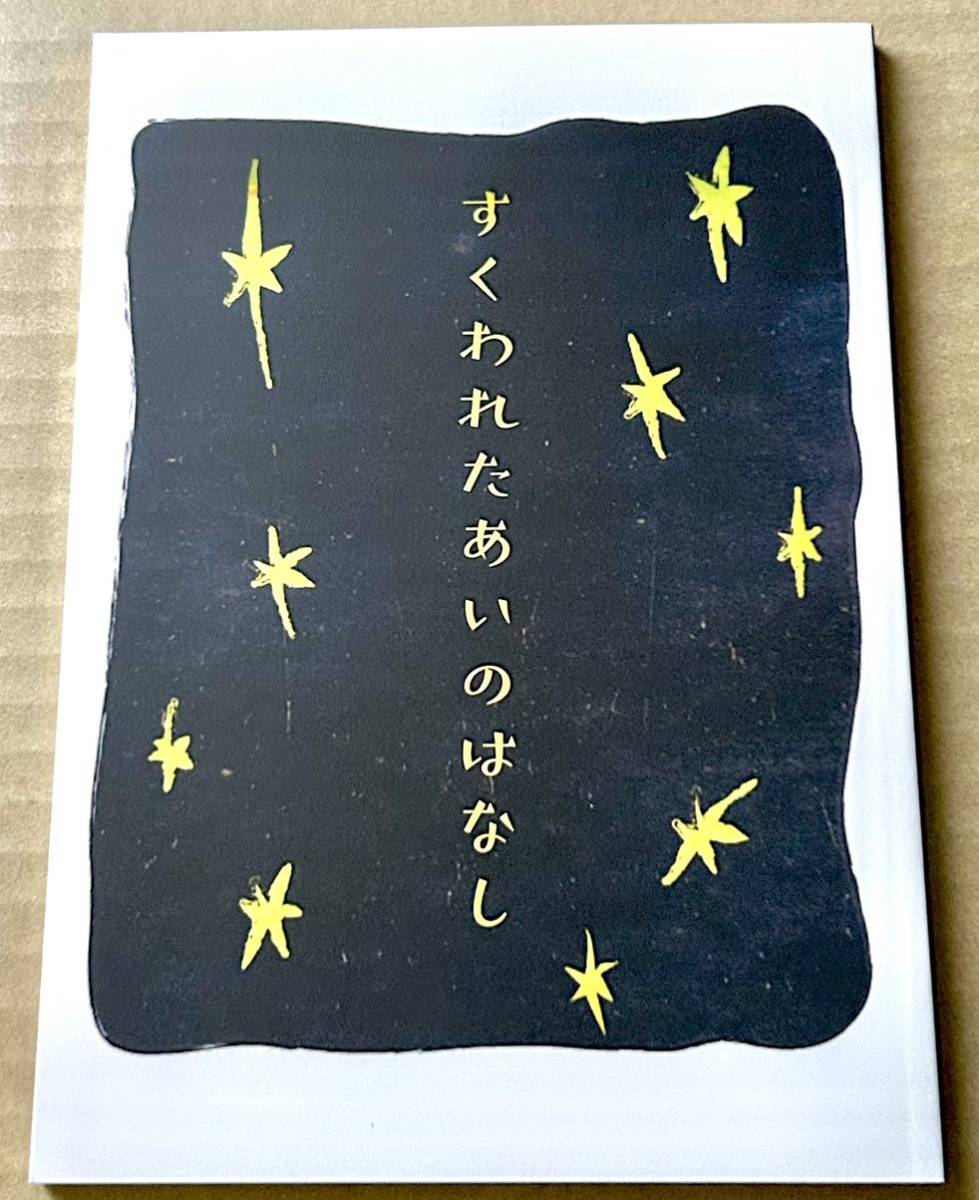 すくわれたあいのはなし